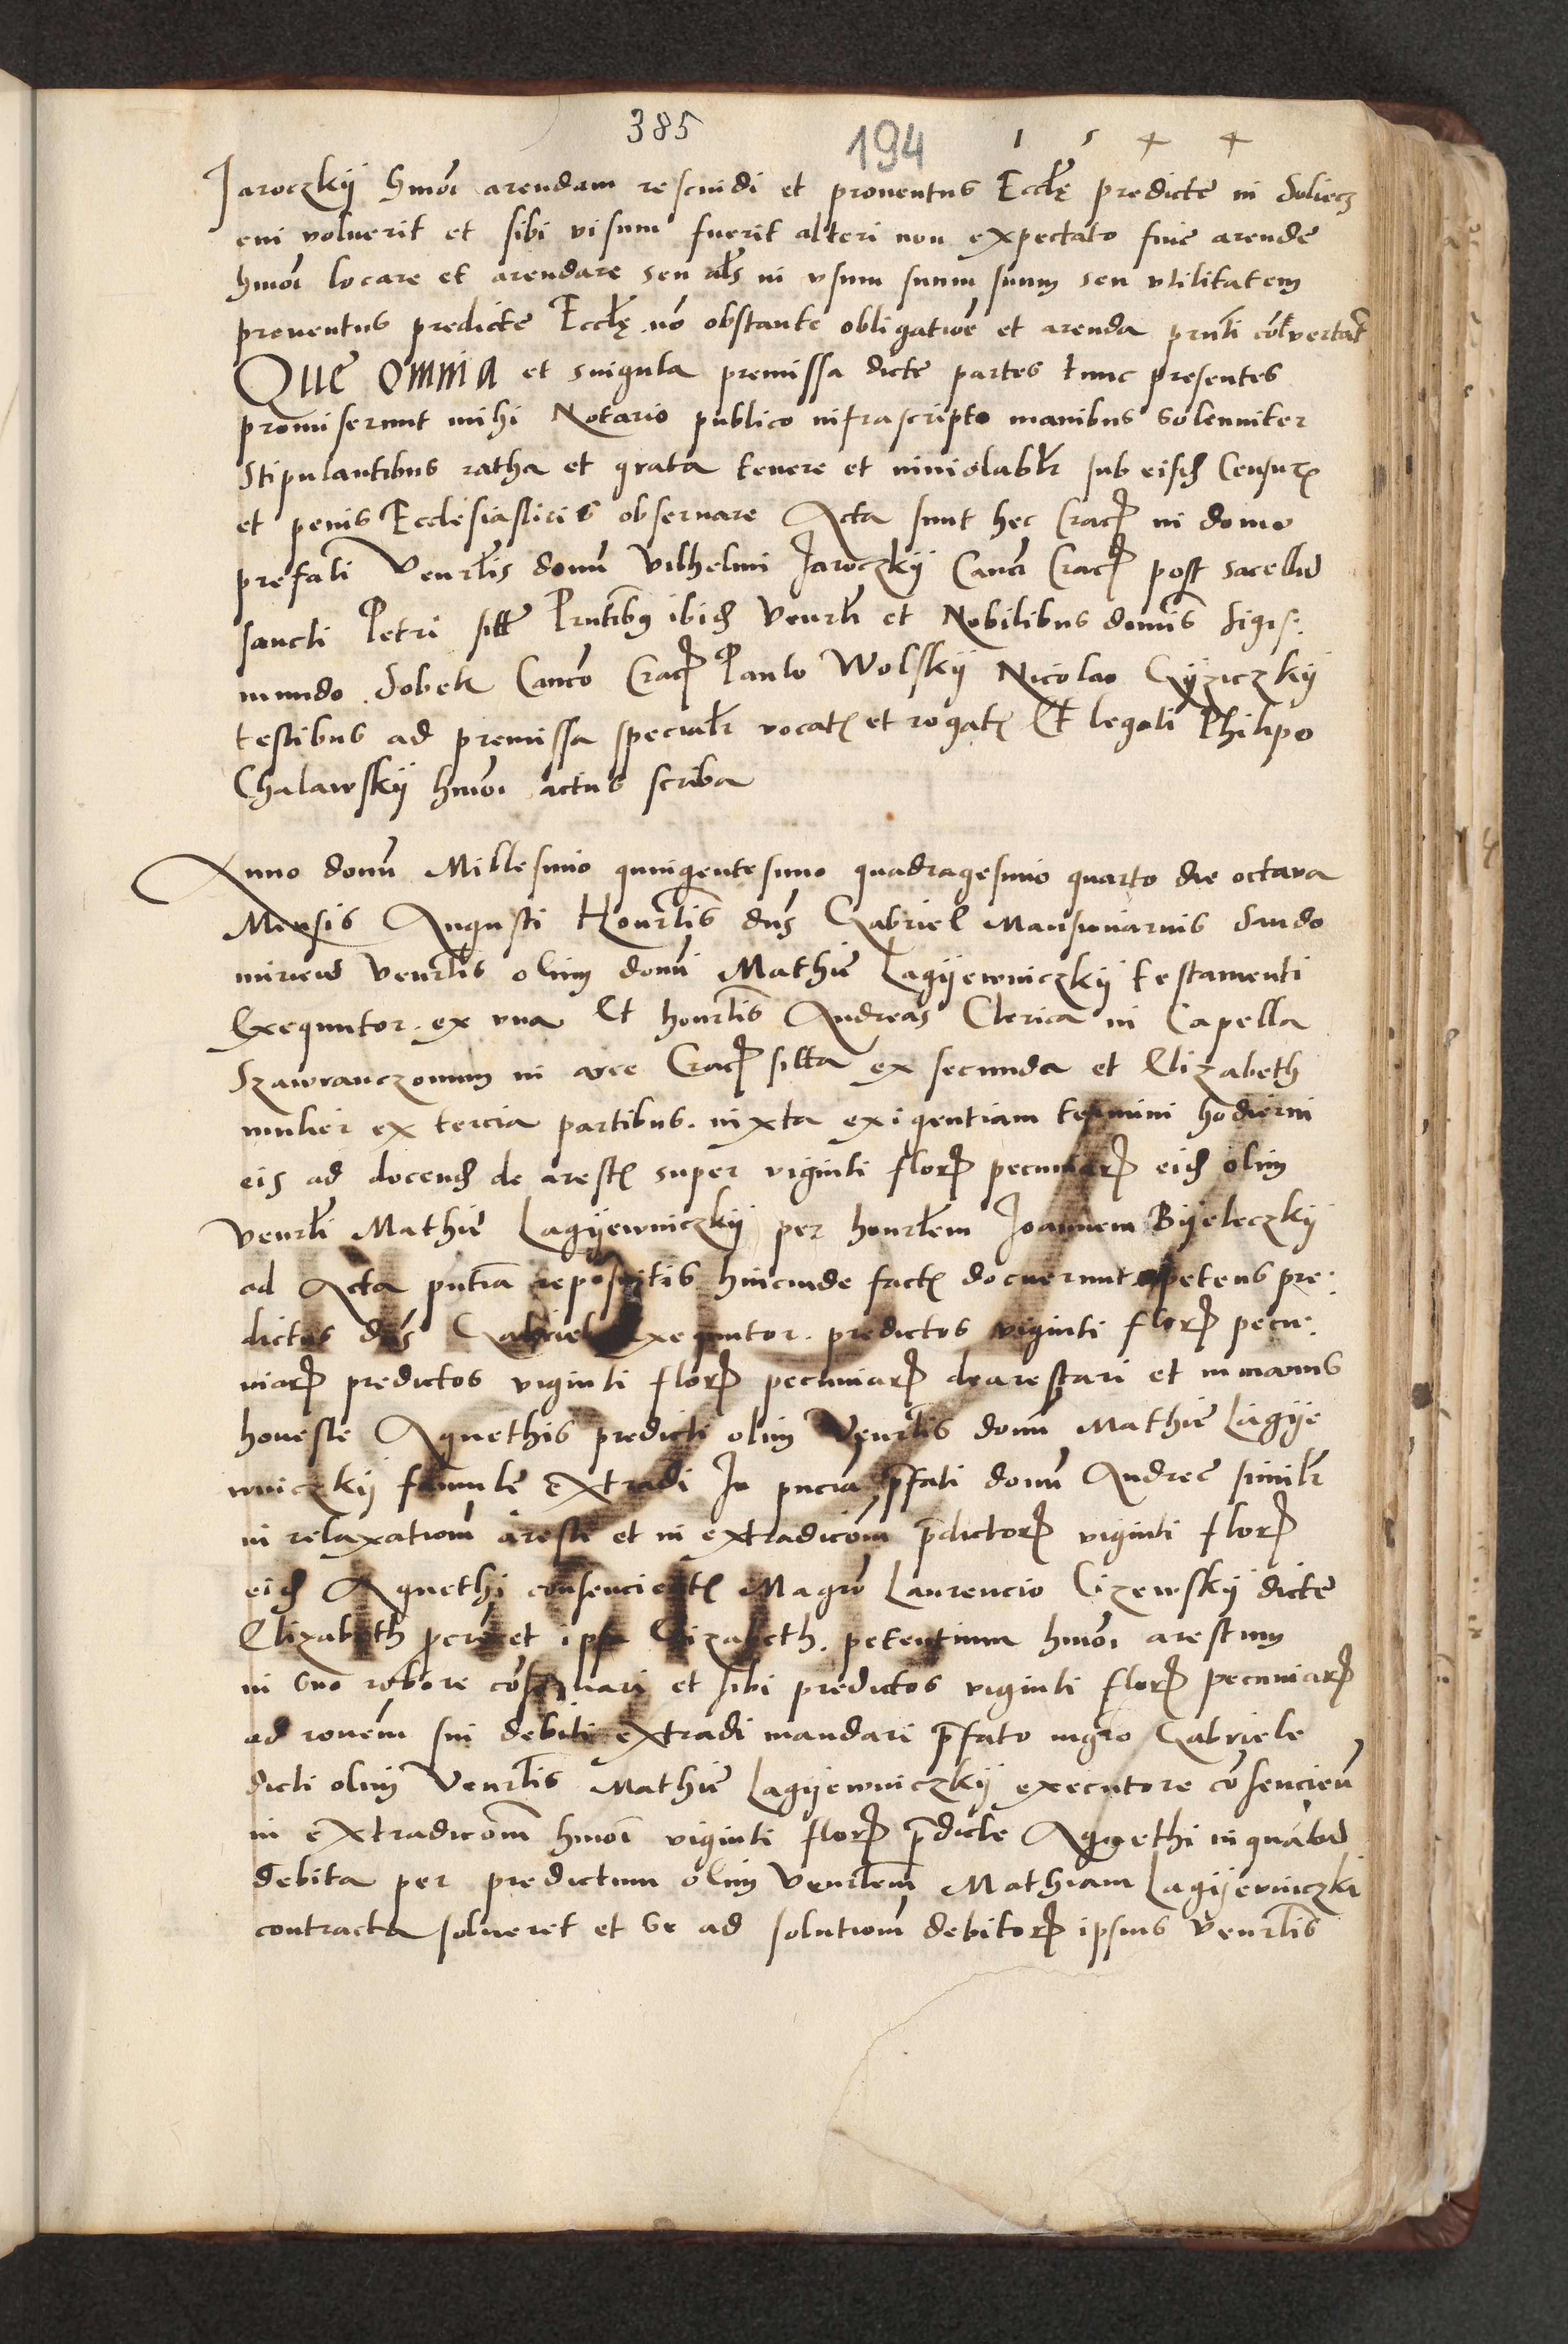 385
194
1 5 4 4
Jaroczkij hmoi arendam rescindi et prouentus Eccle predicte in Soliecz
cui voluerit et sibi visum fuerit alteri non expectato fine arende
hmoi locare et arendare seu als in vsum suum suum seu vtilitatem
prouentus predicte Eccle no obstante obligatioe et arenda pnti couertat
Que omnia et singula premissa dicte partes tunc presentes
promiserunt mihi Notario publico infrascripto manibus solenniter
Stipulantibus ratha et grata tenere et inuiolablr sub eisd Censur
et penis Ecclesiasticis obseruare Acta sunt hec Crac in domo
prefati Venrlis domi Vilhelmi Jaroczkij Canci Crac post sacellu
sancti Petri sitt Pntibus ibid Venrli et Nobilibus dominis Sigis:
mundo Sobek Canco Crac Paulo Wolskij Nicolao Cijziczkij
testibus ad premissa specialr vocat et rogat Et legali Philipo
Chalawskij hmoi actus scriba
Anno domi Millesimo quingentesimo quadragesimo quarto die octaua
Mensis Augusti Honrlis dns Gabriel Mansionarius Sando
mirien Venrlis olim domi Mathie Lagijewniczkij testamenti
Exequutor ex vna Et honrlis Andreas Clerica in Capella
Szawranczonum in arce Crac sitta ex secunda et Elizabeth
mulier ex tercia partibus iuxta exigentiam termini hodierni
eis ad docend de arest super viginti flor pecuniar eid olim
Venrli Mathie Lagijewniczkij per honrlem Joannem Bijeleczkij
ad Acta pntia repositis hincinde fact docuerunt petens pre:
dictus dns Gabriel Exequutor predictos viginti flor pecu:
niar predictos viginti flor pecuniar dearestari et in manus
honeste Agnethis predicti olim Venrlis domi Mathie Lagije
wniczkij famule extradi In pncia pfati domi Andree similr
in relaxationem aresti et in extradicom pdictor viginti flor
eid Agnethi consencient Magro Laurencio Cizewskij dicte
Elizabeth procre et ipsa Elizabeth petentium hmoi arestum
in suo robore conseruari et sibi predictos viginti flor pecuniar
ad ronem sui debiti extradi mandari pfato mgro Gabriele
dicti olim Venrlis Mathie Lagijewniczkij executore consencien
in extradicom hmoi viginti flor pdicte Agnethi
debita per predictum olim Venrlem Mathiam Lagijewniczki
contracta solueret et se ad solutiom debitor ipsius Venrlis